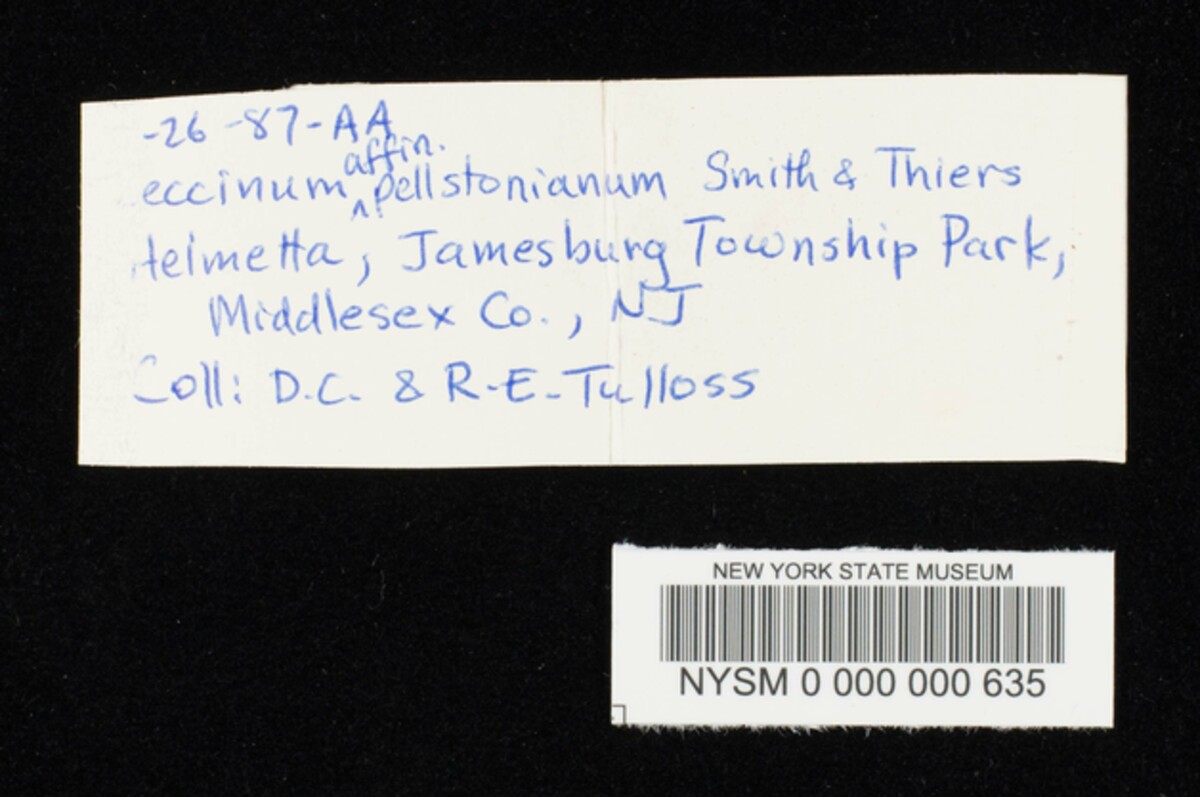 -26-87-AA
eccinum affin. pellstonianum Smith & Thiers
telmetta, Jamesburg Township Park,
Middlesex Co., NJ
Coll: D.C. & R.E. Tulloss
NEW YORK STATE MUSEUM
NYSM 0 000 000 635